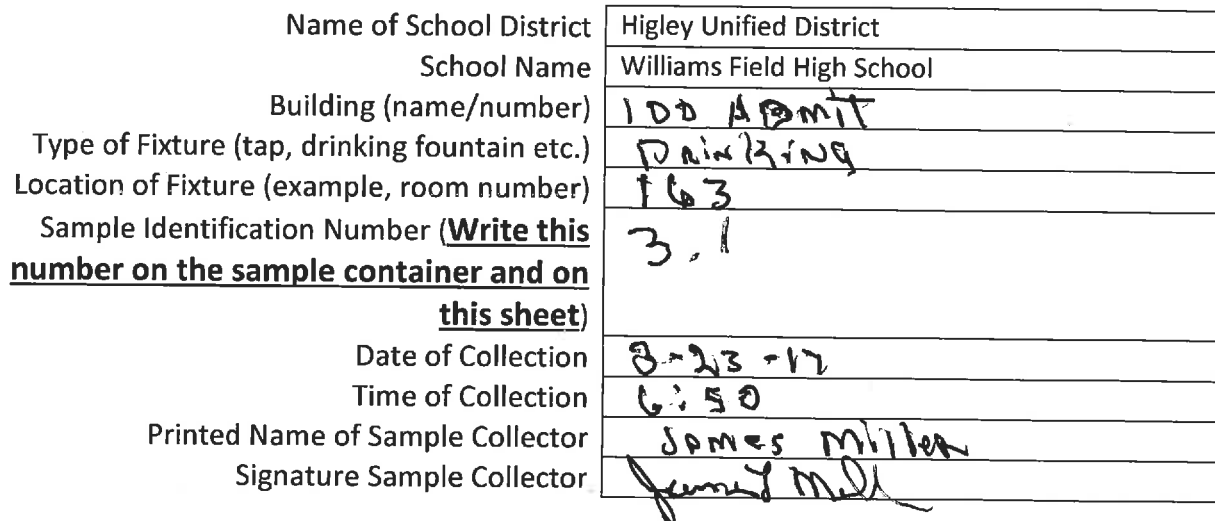 Name of School District Higley Unified District
School Name Williams Field High School
Building (name/number) 100 ADMIT
Type of Fixture (tap, drinking fountain etc.) DRiNKiNG
Location of Fixture (example, room number) 163
Sample Identification Number (Write this 3.1
number on the sample container and on
this sheet)
Date of Collection 3-23-17
Time of Collection 6:50
Printed Name of Sample Collector James Miller
Signature Sample Collector